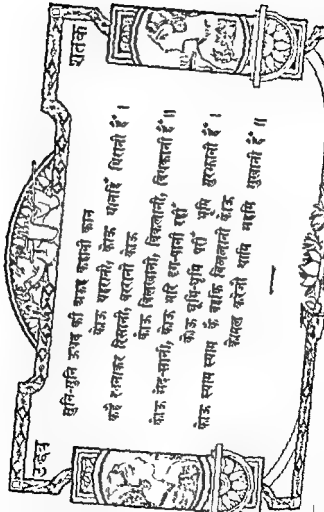 उद्धव शतक
सुनि-सुनि ऊधव की अकह कहानी कान
कोऊ थहरानी, कोऊ थानहिं थिरानी हैं ।
कहै रत्नाकर रिसानी, बररानी कोऊ
कोऊ बिलखानी, बिकलानी, बिथकानी हैं ॥
कोऊ सेद-सानी, कोऊ भरि दृग-पानी रहीं
कोऊ घूमि-घूमि परीं भूमि मुरझानी हैं ।
कोऊ स्याम स्याम कै बहकि बिललानी कोऊ
कोमल करेजौ थामि सहमि सुखानी हैं ॥